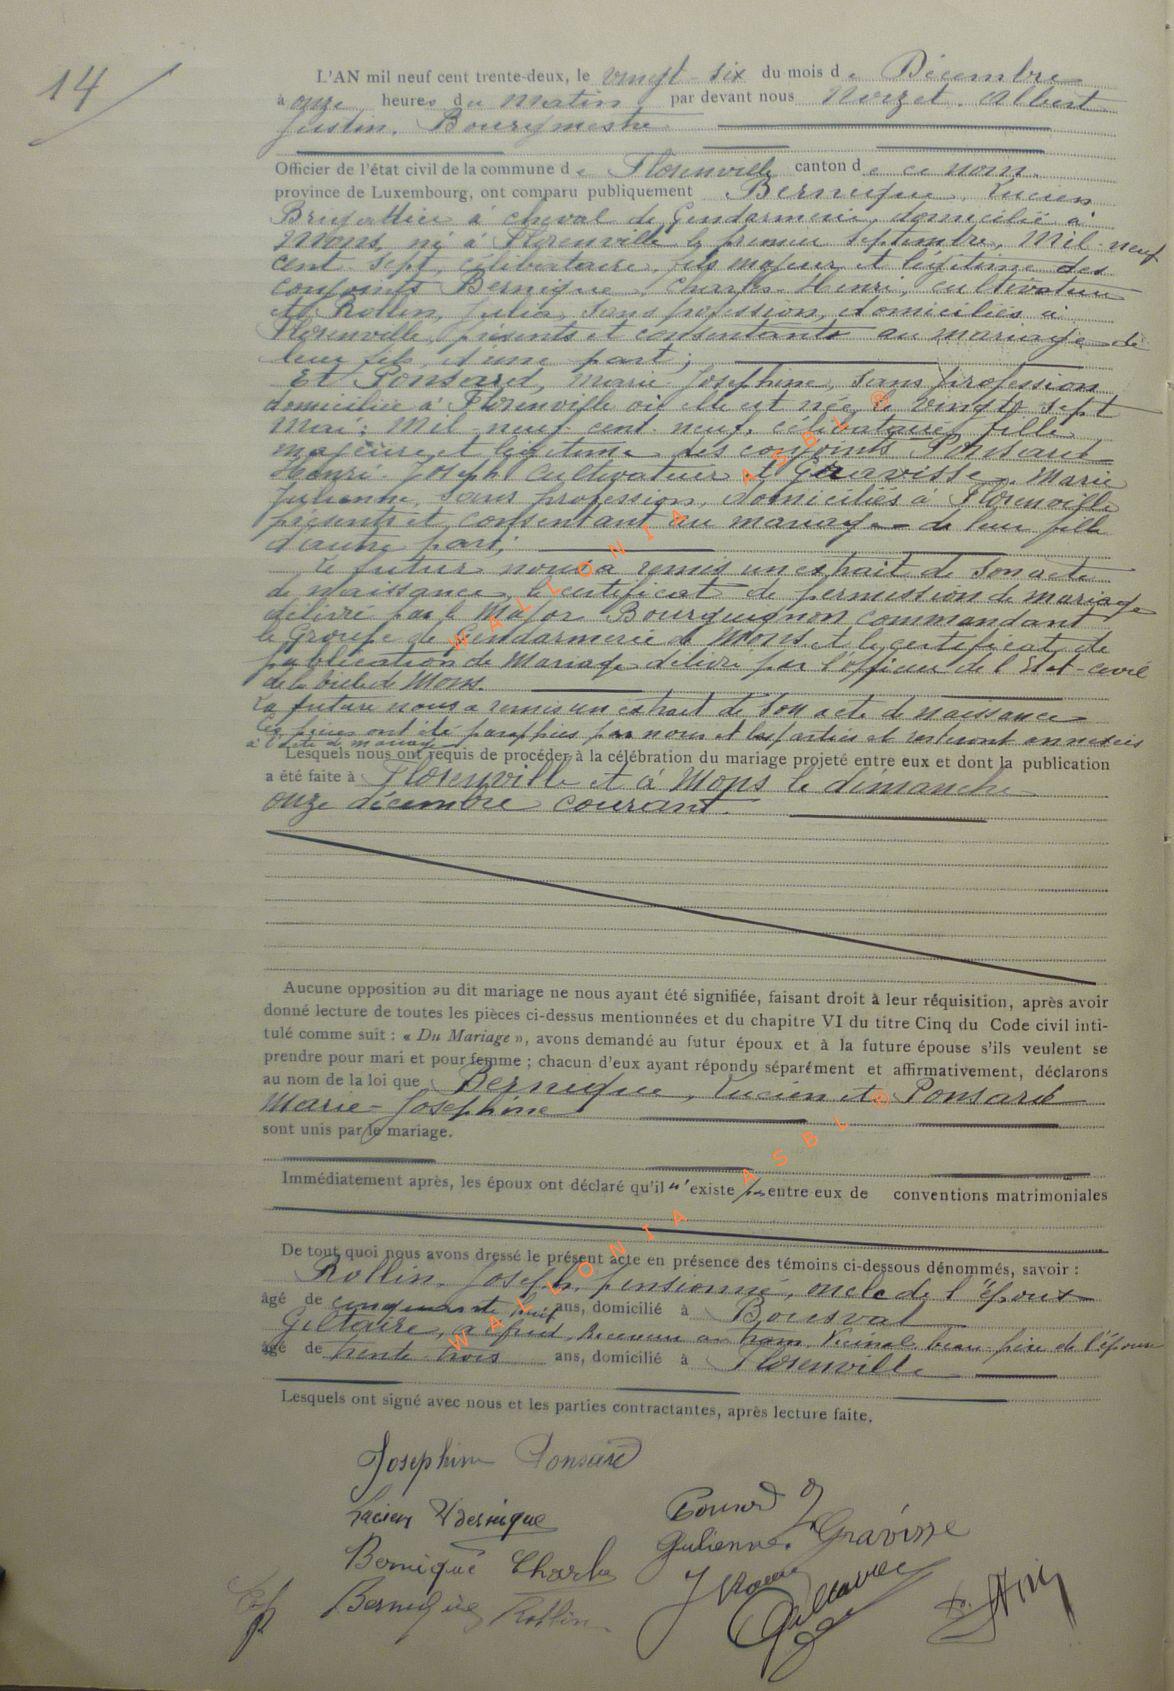 14
L'AN mil neuf cent trente-deux, le vingt-six du mois de Décembre
à onze heures du matin par devant nous Noizet. Albert
Justin. Bourgmestre
Officier de l'état civil de la commune de Florenville canton de ce nom.
province de Luxembourg, ont comparu publiquement Bernique Lucien
à cheval de Gendarmerie, domicilié à
Mons, né à Florenville le premier septembre, Mil-neuf
cent sept, célibataire, fils majeur et légitime des
conjoints Bernique, Charles-Henri, cultivateur
et Rollin, Julia, sans profession, domiciliés à
Florenville, présents et consentants au mariage de
leur fils, d'une part;
Et Ponsard, Marie-Josephine, sans profession
domiciliée à Florenville où elle est née, le vingt sept
Mai; Mil-neuf cent neuf, célibataire, fille
majeure et légitime des conjoints Ponsard
Henri-Joseph cultivateur et Gravisse. Marie
Julienne, sans profession, domiciliés à Florenville
présents et consentant au mariage de leur fille
d'autre part;
Le futur nous a remis un extrait de son acte
de naissance, le certificat de permission de mariage
délivré par le Major Bourguignon Commandant
le Groupe de Gendarmerie de Mons et le certificat de
publication de Mariage délivré par l'officier de l'Etat-civil
de la ville de Mons.
La future nous a remis un extrait de son acte de naissance
Ces pièces ont été paraphées par nous et les parties et resteront annexées
à l'acte de mariage
Lesquels nous ont requis de procéder à la célébration du mariage projeté entre eux et dont la publication
a été faite à Florenville et à Mons le dimanche
onze décembre courant.
Aucune opposition au dit mariage ne nous ayant été signifiée, faisant droit à leur réquisition, après avoir
donné lecture de toutes les pièces ci-dessus mentionnées et du chapitre VI du titre Cinq du Code civil inti-
tulé comme suit : « Du Mariage », avons demandé au futur époux et à la future épouse s'ils veulent se
prendre pour mari et pour femme ; chacun d'eux ayant répondu séparément et affirmativement, déclarons
au nom de la loi que Bernique, Lucien et Ponsard
Marie-Josephine
sont unis par le mariage.
Immédiatement après, les époux ont déclaré qu'il n'existe pas entre eux de conventions matrimoniales
De tout quoi nous avons dressé le présent acte en présence des témoins ci-dessous dénommés, savoir :
Rollin, Joseph, pensionné, oncle de l'époux
âgé de cinquante huit ans, domicilié à Bousval
Giltaire, Alfred, Receveur au tram Vicinal beau-frère de l'épouse
âgé de trente trois ans, domicilié à Florenville
Lesquels ont signé avec nous et les parties contractantes, après lecture faite.
Josephine Ponsard
Lucien Bernique
Julienne Gravisse
Bernique Charles
Bernique Rollin
WALLONIA ASBL ®
WALLONIA ASBL ®